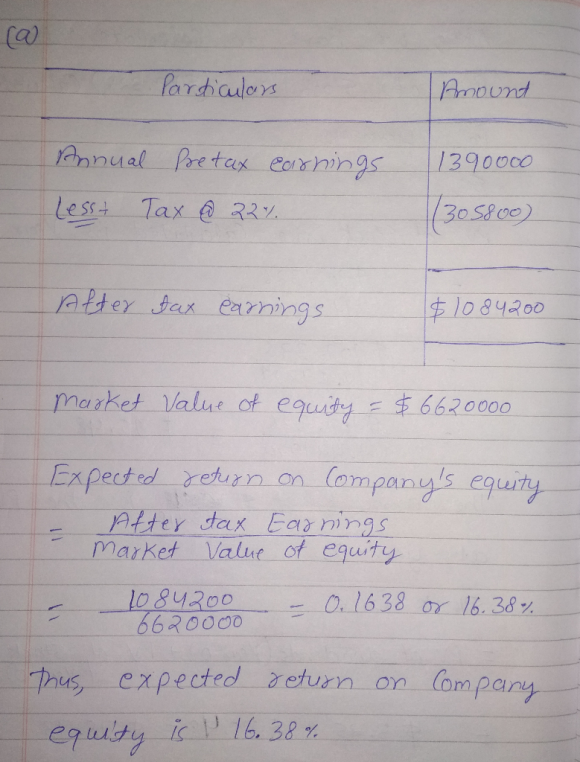 (a)
Particulars Amount
Annual Pretax earnings 1390000
Less:- Tax @ 22%. (305800)
After tax earnings $1084200
Market Value of equity = $6620000
Expected return on Company's equity
= After tax Earnings
Market Value of equity
= 1084200 = 0.1638 or 16.38%
6620000
Thus, expected return on Company
equity is 16.38%.